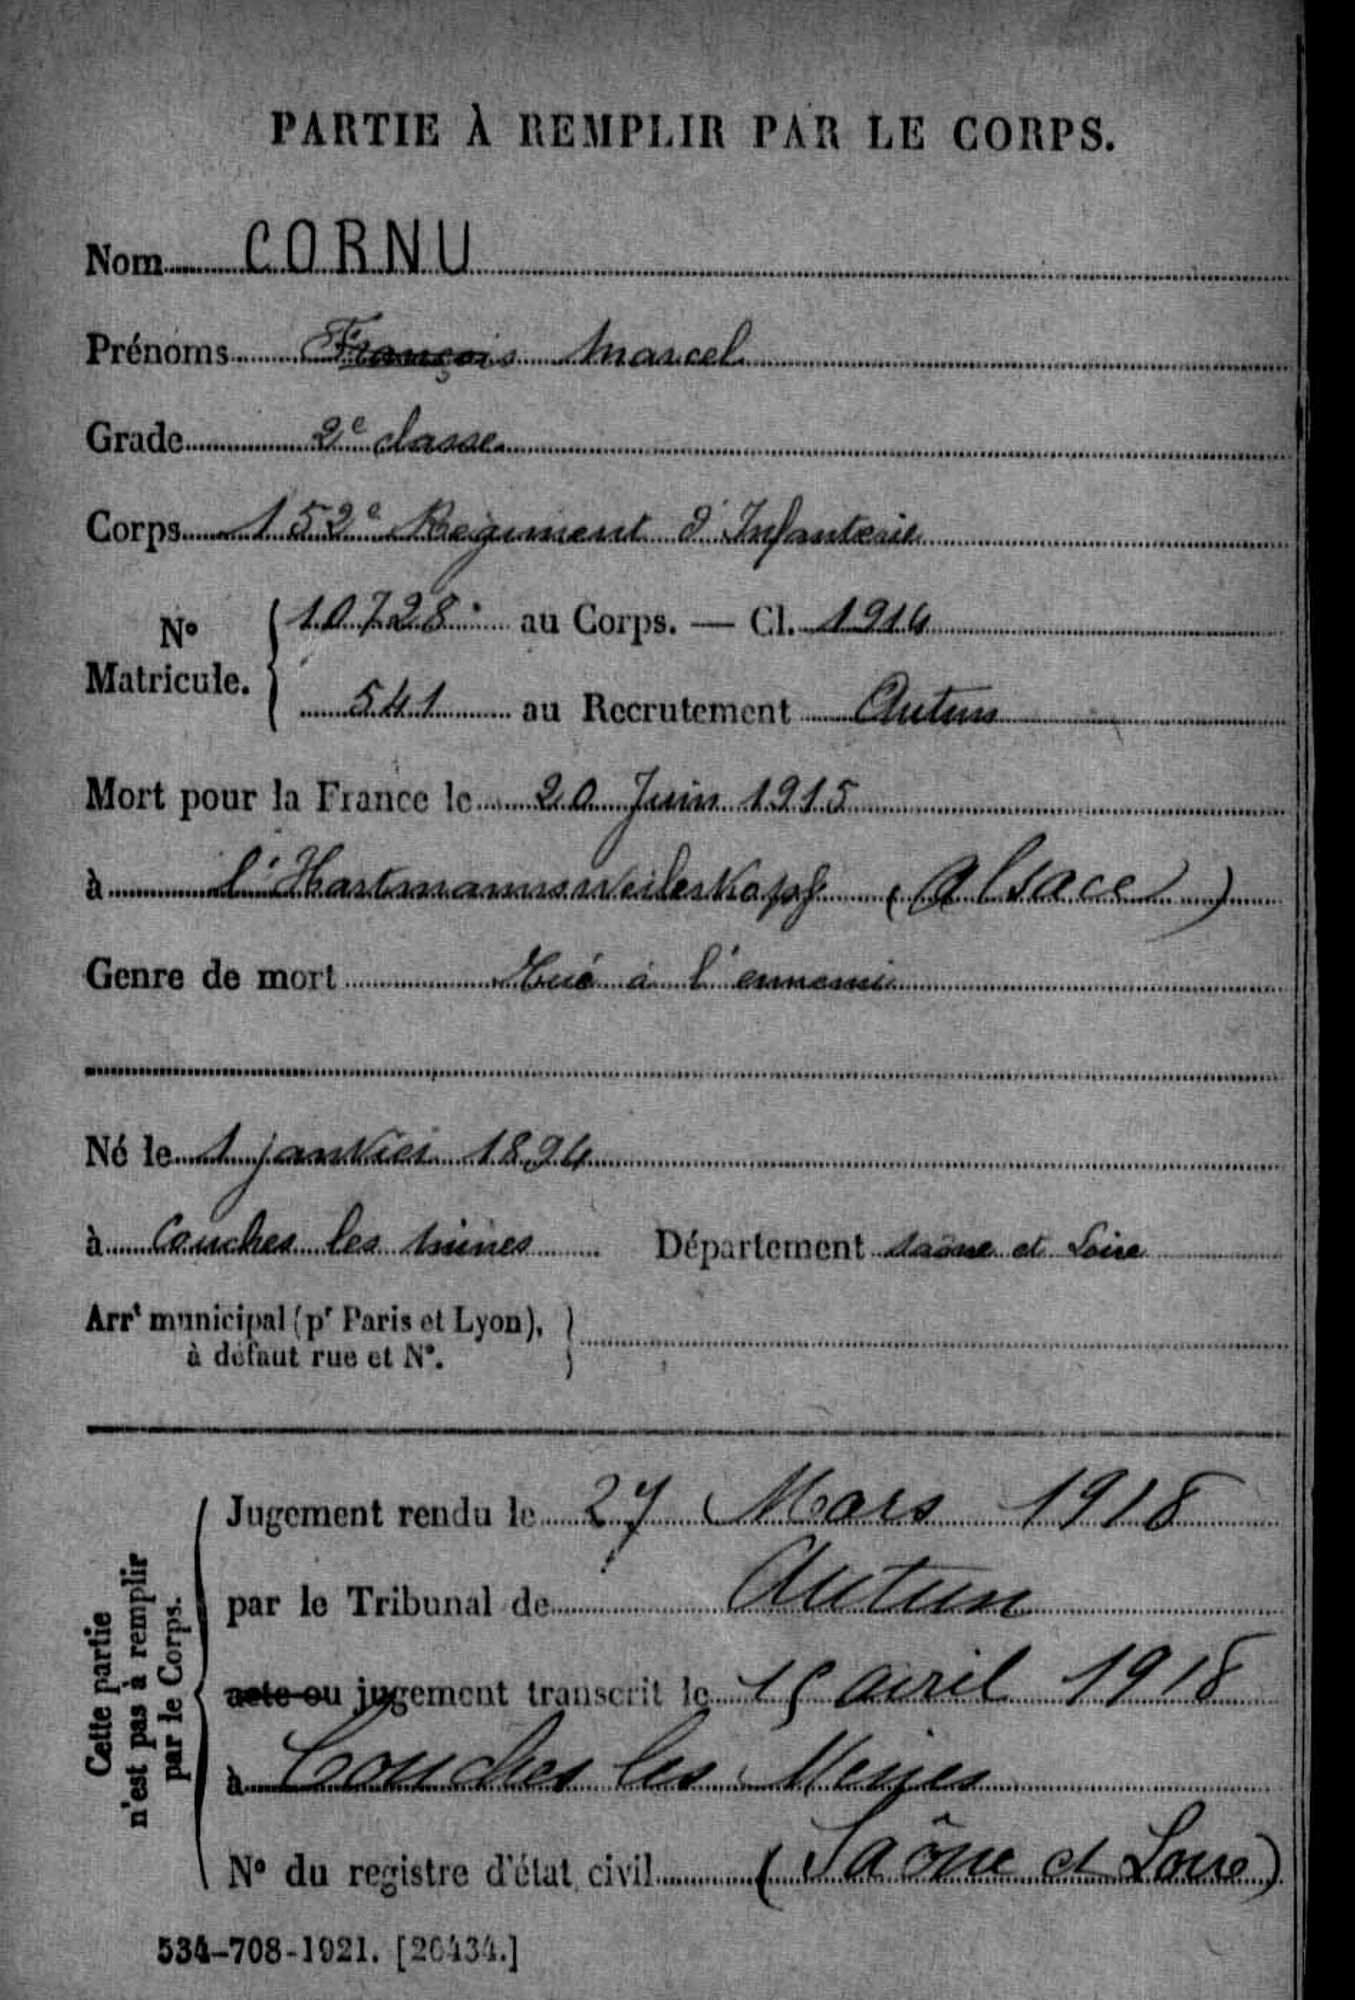 PARTIE À REMPLIR PAR LE CORPS.
Nom CORNU
Prénoms François Marcel
Grade 2e classe
Corps 152e Régiment d'Infanterie
No Matricule. { 10728 au Corps. — Cl. 1914
541 au Recrutement Autun
Mort pour la France le 20 Juin 1915
à l'Hartmannsweilerkopf (Alsace)
Genre de mort Tué à l'ennemi
Né le 1 janvier 1894
à Couches les Mines Département Saône et Loire
Arrt municipal (pr Paris et Lyon), }
à défaut rue et No.
Cette partie
n'est pas à remplir
par le Corps.
Jugement rendu le 27 Mars 1918
par le Tribunal de Autun
acte ou jugement transcrit le 15 avril 1918
à Couches les Mines
No du registre d'état civil (Saône et Loire)
534-708-1921. [26434.]